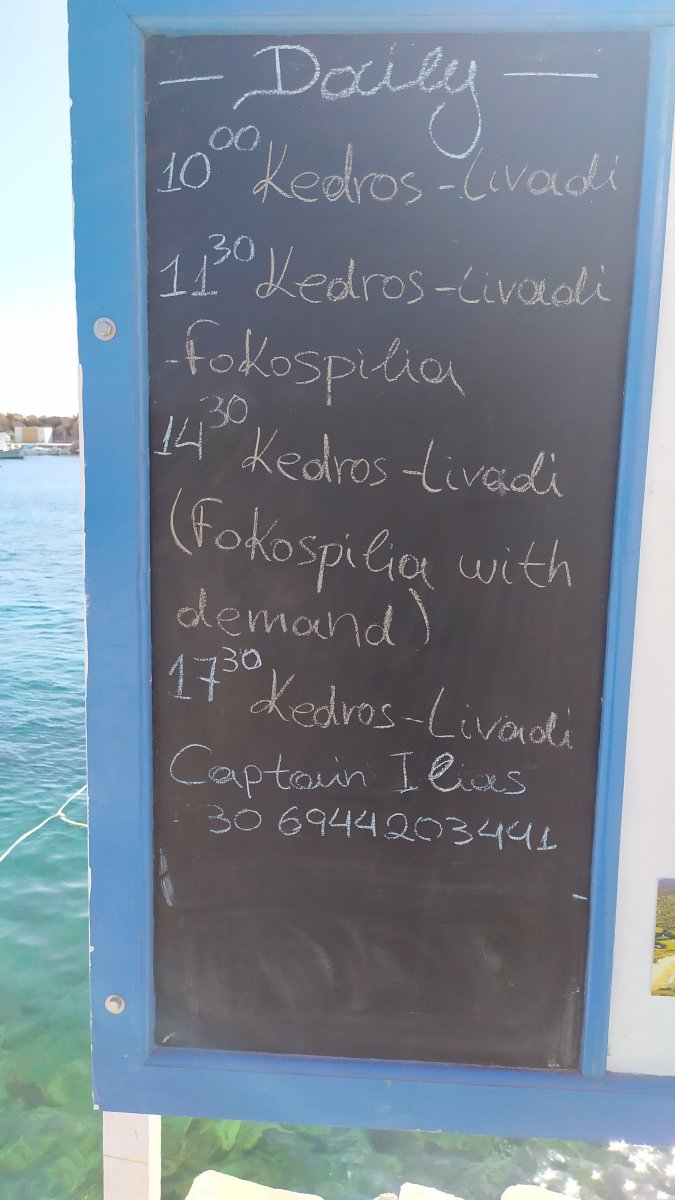 — Daily —
10⁰⁰ Kedros-Livadi
11³⁰ Kedros-Livadi
-Fokospilia
14³⁰ Kedros-Livadi
(Fokospilia with
demand)
17³⁰ Kedros-Livadi
Captain Ilias
30 6944203441